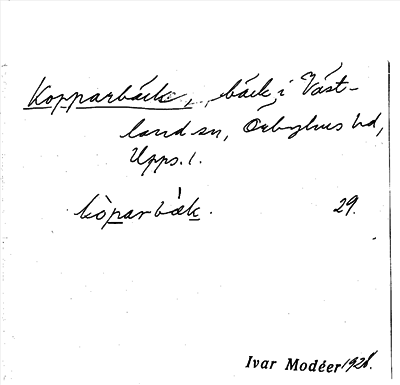 Kopparbäck, bäck i Väst-
land sn, Örbyhus hd,
Upps. l.
kòparbæ̀k. 29.
Ivar Modéer 1928.